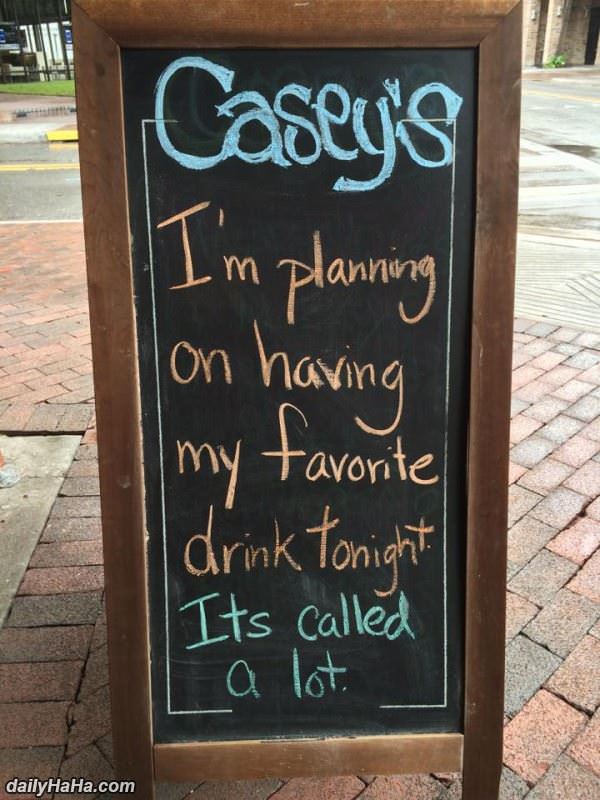 Casey's
I'm planning
on having
my favorite
drink tonight.
Its called
a lot.
dailyHaHa.com